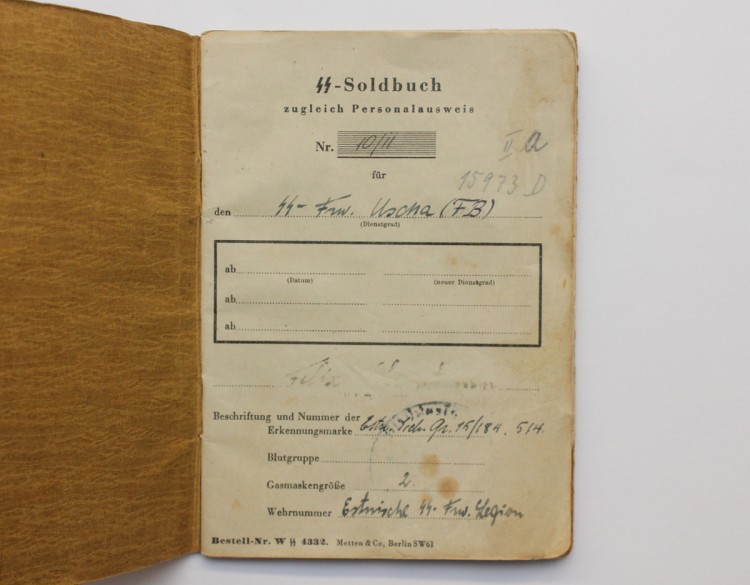 ϟϟ-Soldbuch
zugleich Personalausweis
Nr. 10/11
II a
für
15973 D
den ϟϟ- Frw. Uscha (FB)
(Dienstgrad)
ab
(Datum) (neuer Dienstgrad)
ab
ab
Beschriftung und Nummer der
Erkennungsmarke Gr. 15/184. 514.
Blutgruppe
Gasmaskengröße 2.
Wehrnummer Estnische ϟϟ- Frw. Legion
Bestell-Nr. W ϟϟ 4332. Metten & Co., Berlin SW61